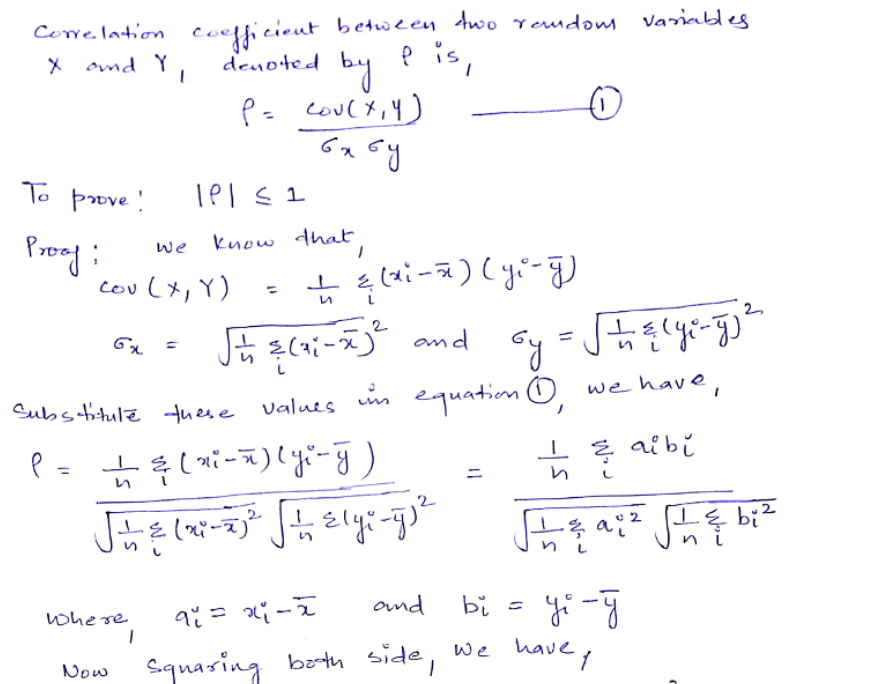 Correlation coefficient between two random variables
X and Y, denoted by ρ is,
ρ = cov(X,Y) / σx σy ——— ①
To prove: |ρ| ≤ 1
Proof: we know that,
cov(X,Y) = 1/n Σi (xi - x̄)(yi - ȳ)
σx = √(1/n Σi (xi - x̄)²) and σy = √(1/n Σi (yi - ȳ)²)
Substitute these values in equation ①, we have,
ρ = 1/n Σi (xi - x̄)(yi - ȳ) / √(1/n Σi (xi - x̄)²) √(1/n Σ(yi - ȳ)²) = 1/n Σi ai bi / √(1/n Σi ai²) √(1/n Σi bi²)
where, ai = xi - x̄ and bi = yi - ȳ
Now squaring both side, we have,